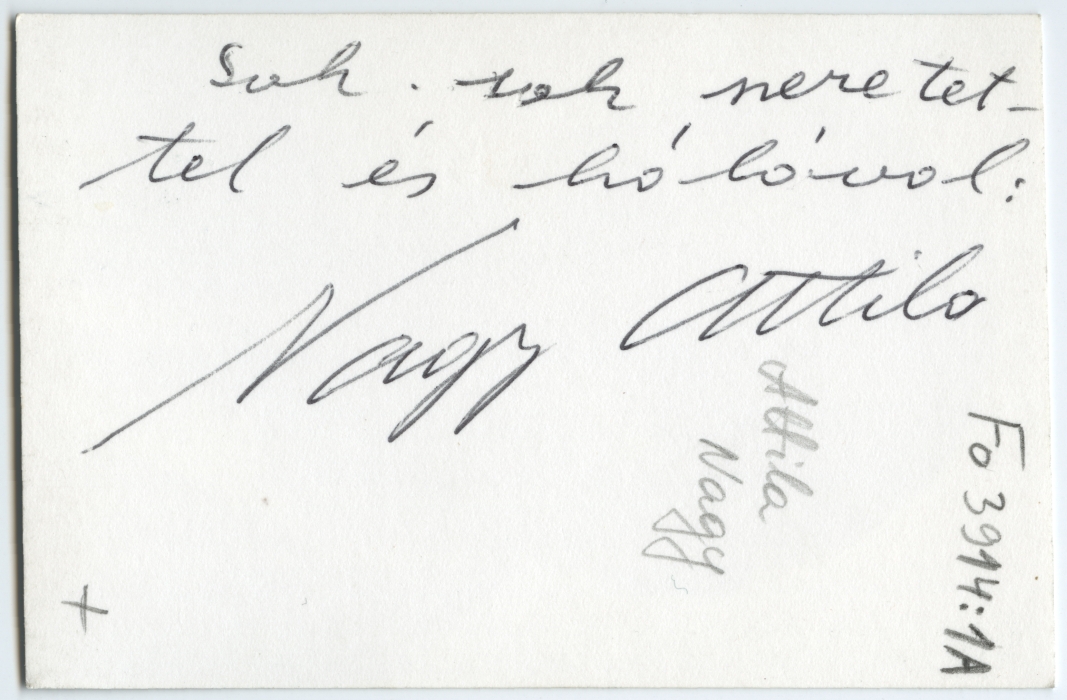 Sok. sok szeretet-
tel és hálával:
Nagy Attila
Attila
Nagy
Fo 3914:1A
+